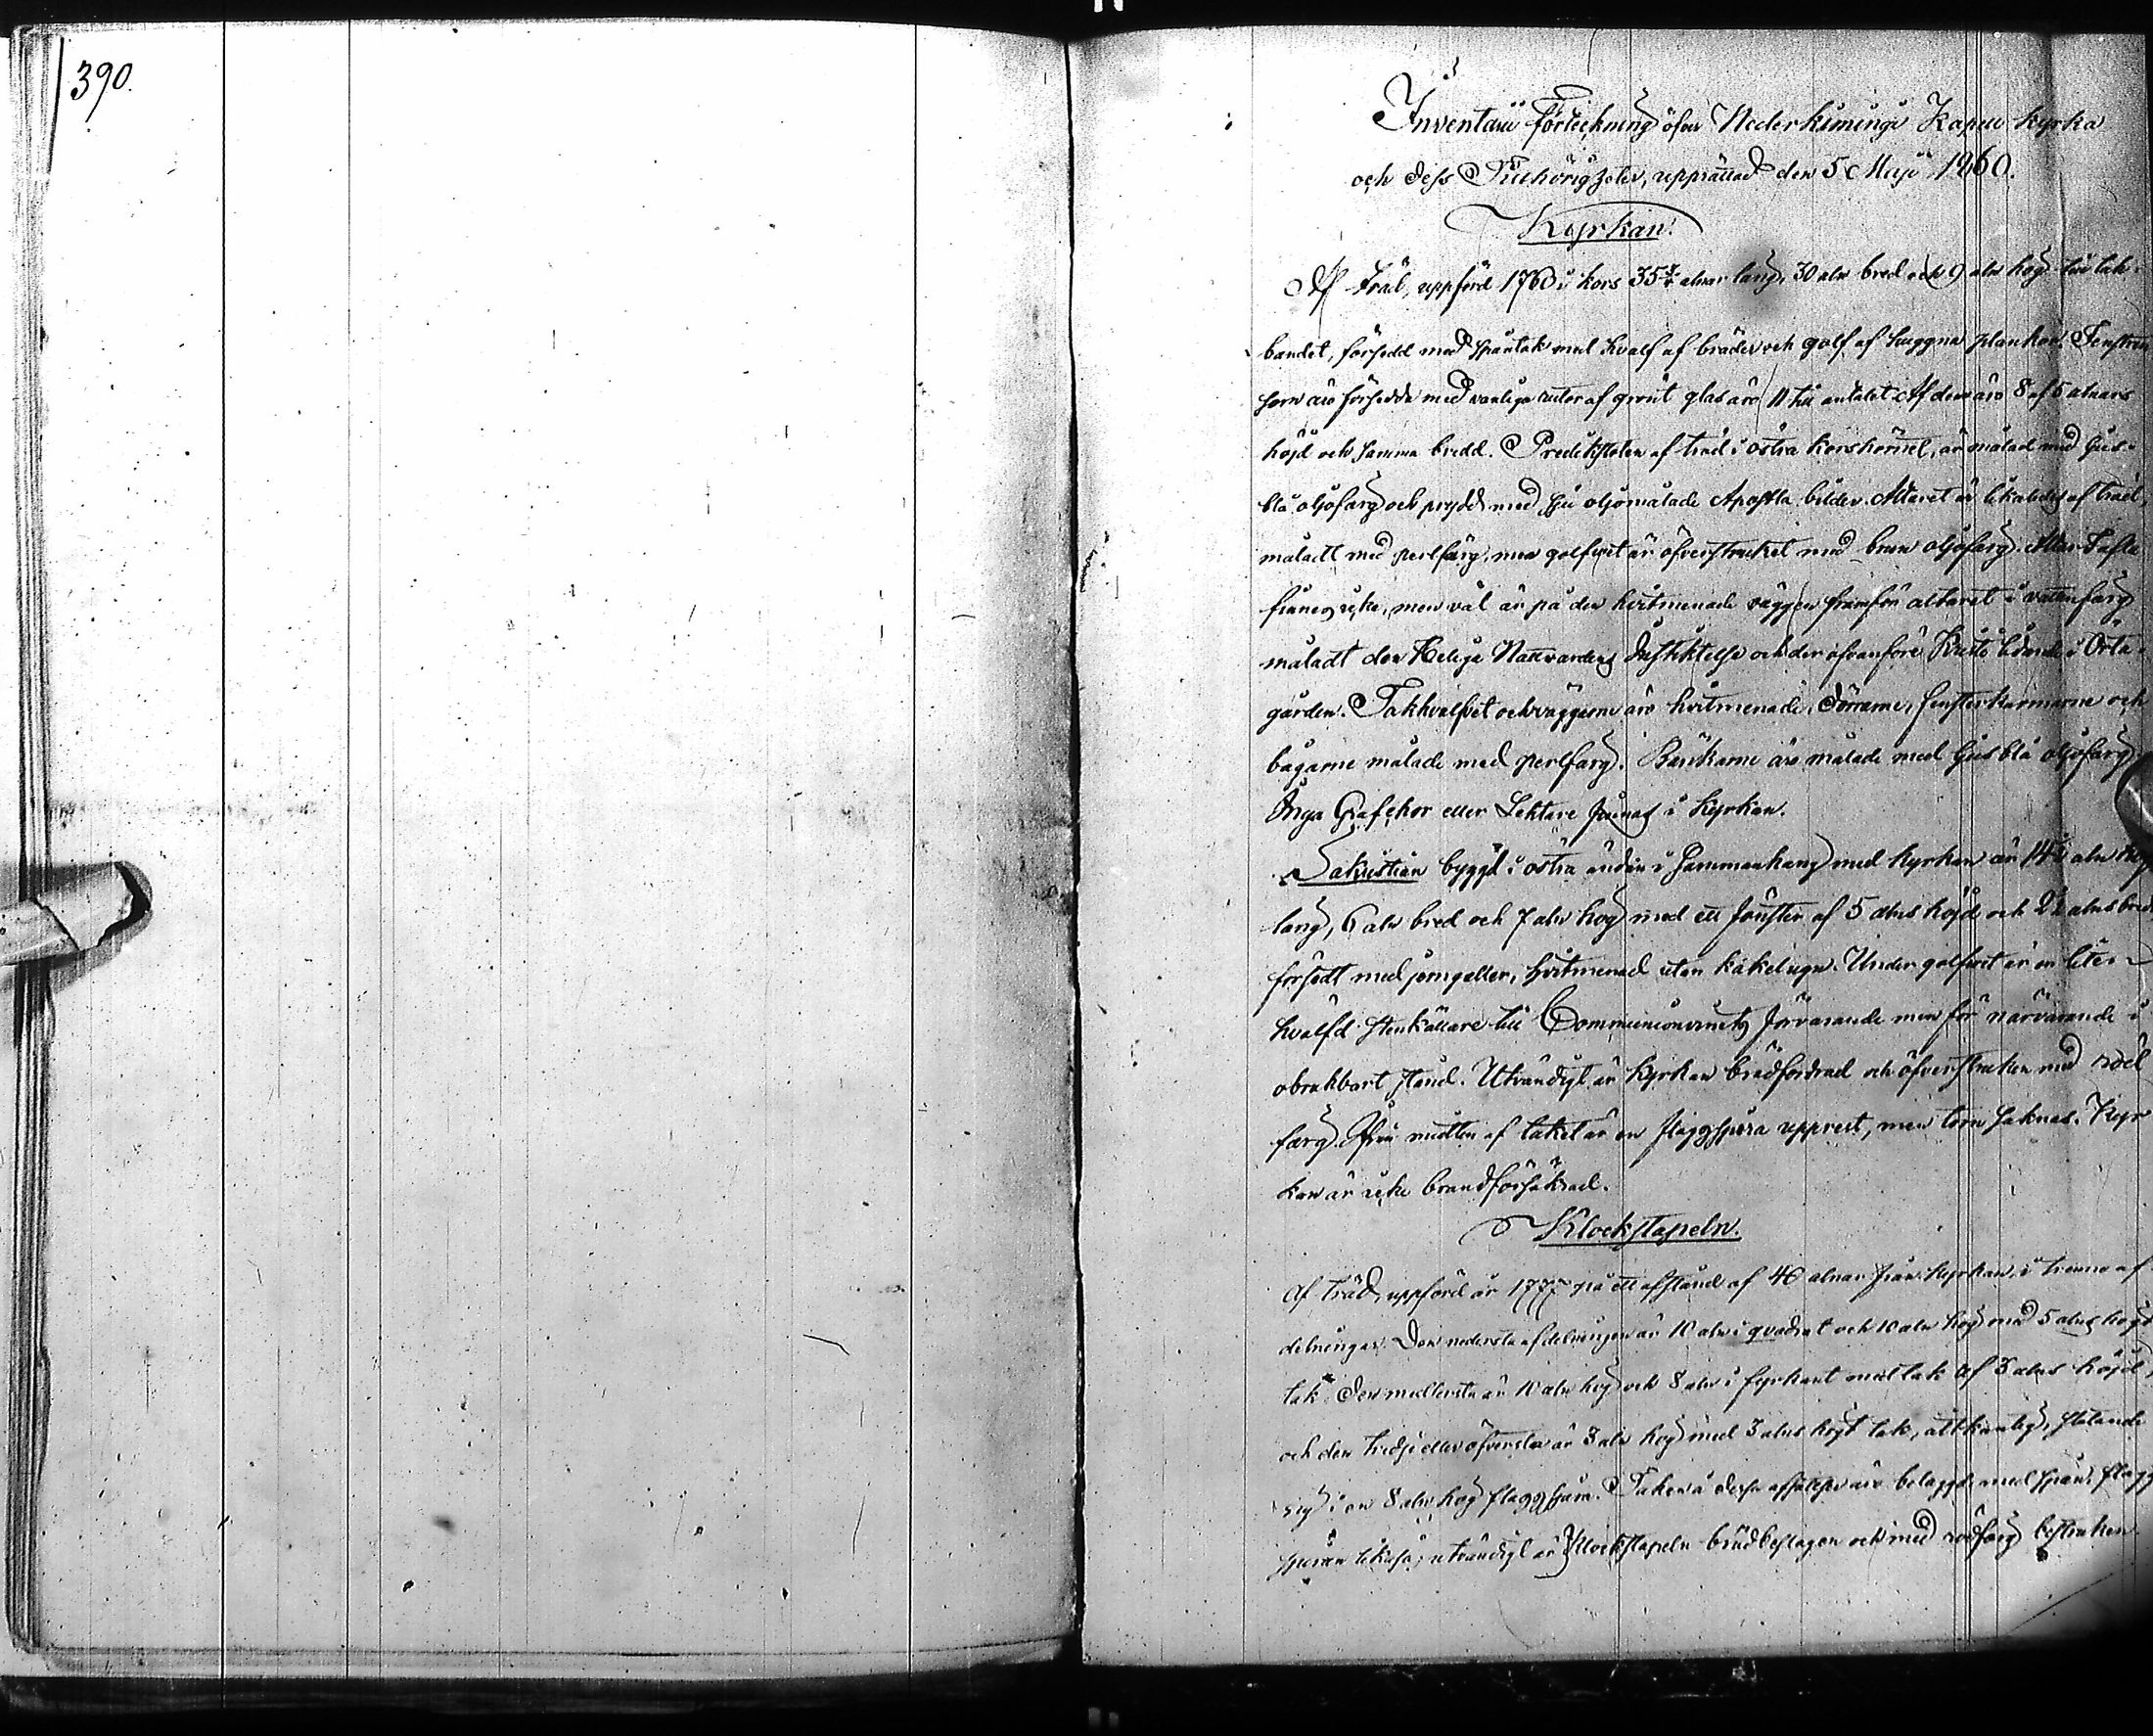 390.
Inventarii förteckning öfver Nederkiminge Kapell kyrka
och dess Tillhörigheter, upprättad den 5 Maji 1860.
Kyrkan.
Af Träd, uppförd 1760 i kors 35 alnar lång, 30 aln bred och 9 aln hög till tak-
bandet, försedd med spåntak med hvalf af bräder och golf af huggna plankor. Fenstren
som äro försedde med vanliga rutor af grönt glas äro 11 till antalet. Af dem äro 8 af 5 alnars
höjd och samma bredd. Predikstolen af träd i östra korshörnet, är målad med ljus-
blå oljofärg och prydd med sju oljomålade Apostla bilder. Altaret är likaledes af träd,
måladt med perlfärg, men golfvet är öfverstruket med brun oljofärg. Altar Tafla
finnes icke, men väl är på den hvitmenade väggen framför altaret i vattenfärg
måladt den Heliga Nattvardens Instiktelse och der ofvanföre Kristi lidande i Örta-
gården. Takhvalfvet och väggarne äro hvitmenade, dörrarne, fensterkarmarne och
bågarne målade med perlfärg. Bänkarne äro målade med ljusblå oljofärg.
Inga Grafchor eller Lektare finnas i Kyrkan.
Sakristian byggd i östra ändan i sammanhang med kyrkan är 14 aln
lång, 6 aln bred och 7 aln hög med ett fönster af 5 alns höjd och 2½ alns bredd
försedt med jerngaller, hvitmenad utan kakelugn. Under golfvet är en liten
hvälfd stenkällare till Communionvinets förvarande men för närvarande i
obrukbart stånd. Utvändigt är Kyrkan brädfodrad och öfverstruken med röd
färg. På midten af taket är en flaggspira upprest, men torn saknas. Kyr
kan är icke brandförsäkrad.
Klockstapeln.
Af träd, uppförd år 1777 på ett afstånd af 40 alnar från Kyrkan, i trenne af
delningar. Den nedersta afdelningen är 10 aln i qvadrat och 10 aln hög med 5 alns högt
tak. Den medlersta är 10 aln hög och 8 aln i fyrkant med tak af 3 alns höjd,
och den tredje eller öfversta är 3 aln hög med 3 alns högt tak, åttkantig, slutande
sig i en 8 aln hög flaggspira. Taken å dessa afsatser äro belaggda med spån, flagg
spiran likaså; utvändigt är Klockstapeln brädbeslagen och med rödfärg bestruken.